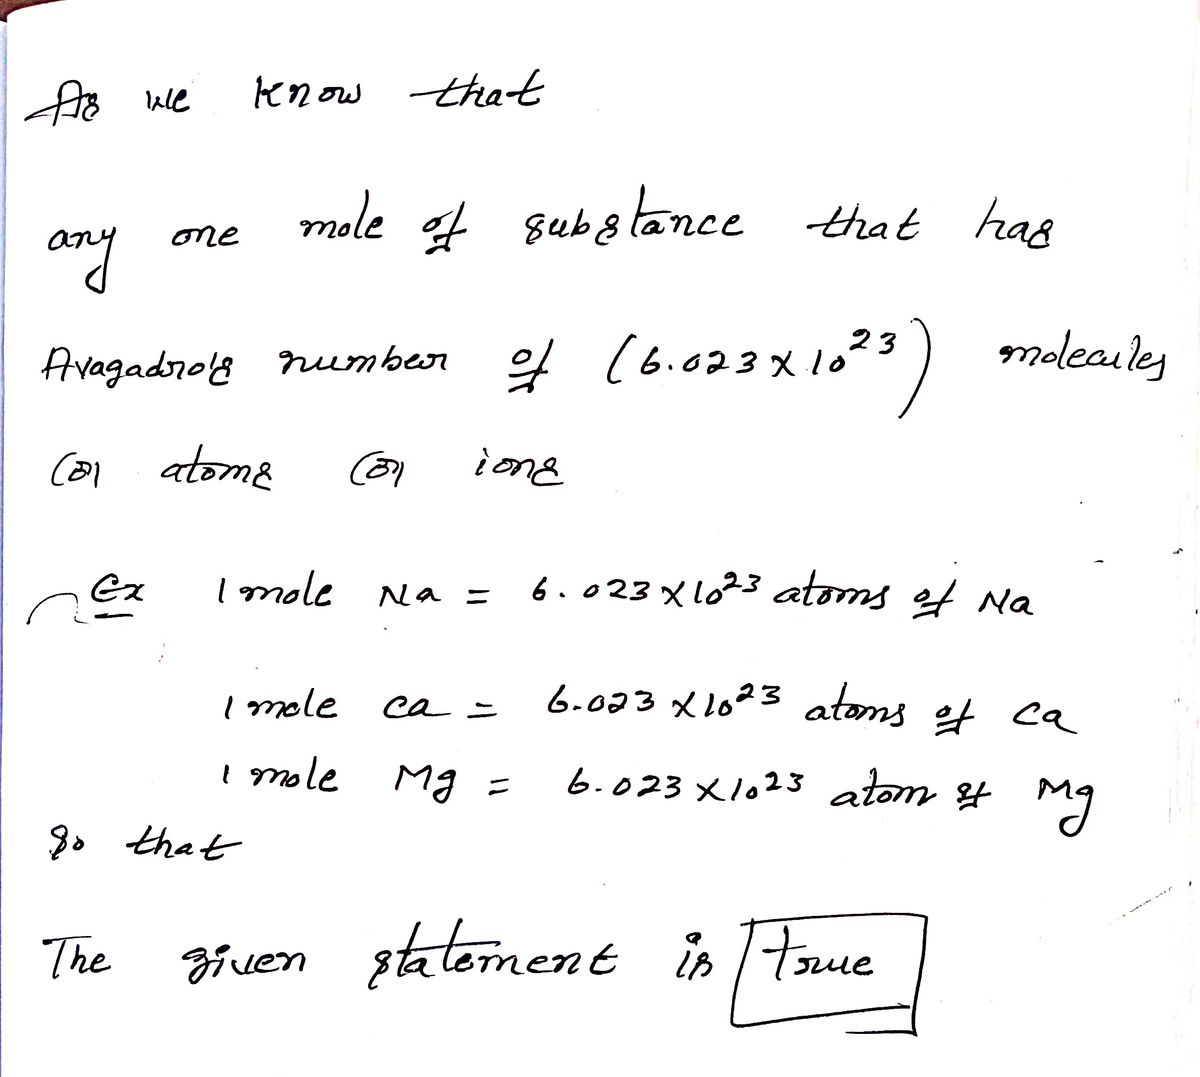 As we know that
any one mole of substance that has
Avagadro's number of (6.023 X 10²³) molecules
(or) atoms (or) ions
Ex 1 mole Na = 6.023 X 10²³ atoms of Na
1 mole Ca = 6.023 X 10²³ atoms of Ca
1 mole Mg = 6.023 X 10²³ atom of Mg
So that
The given statement is true